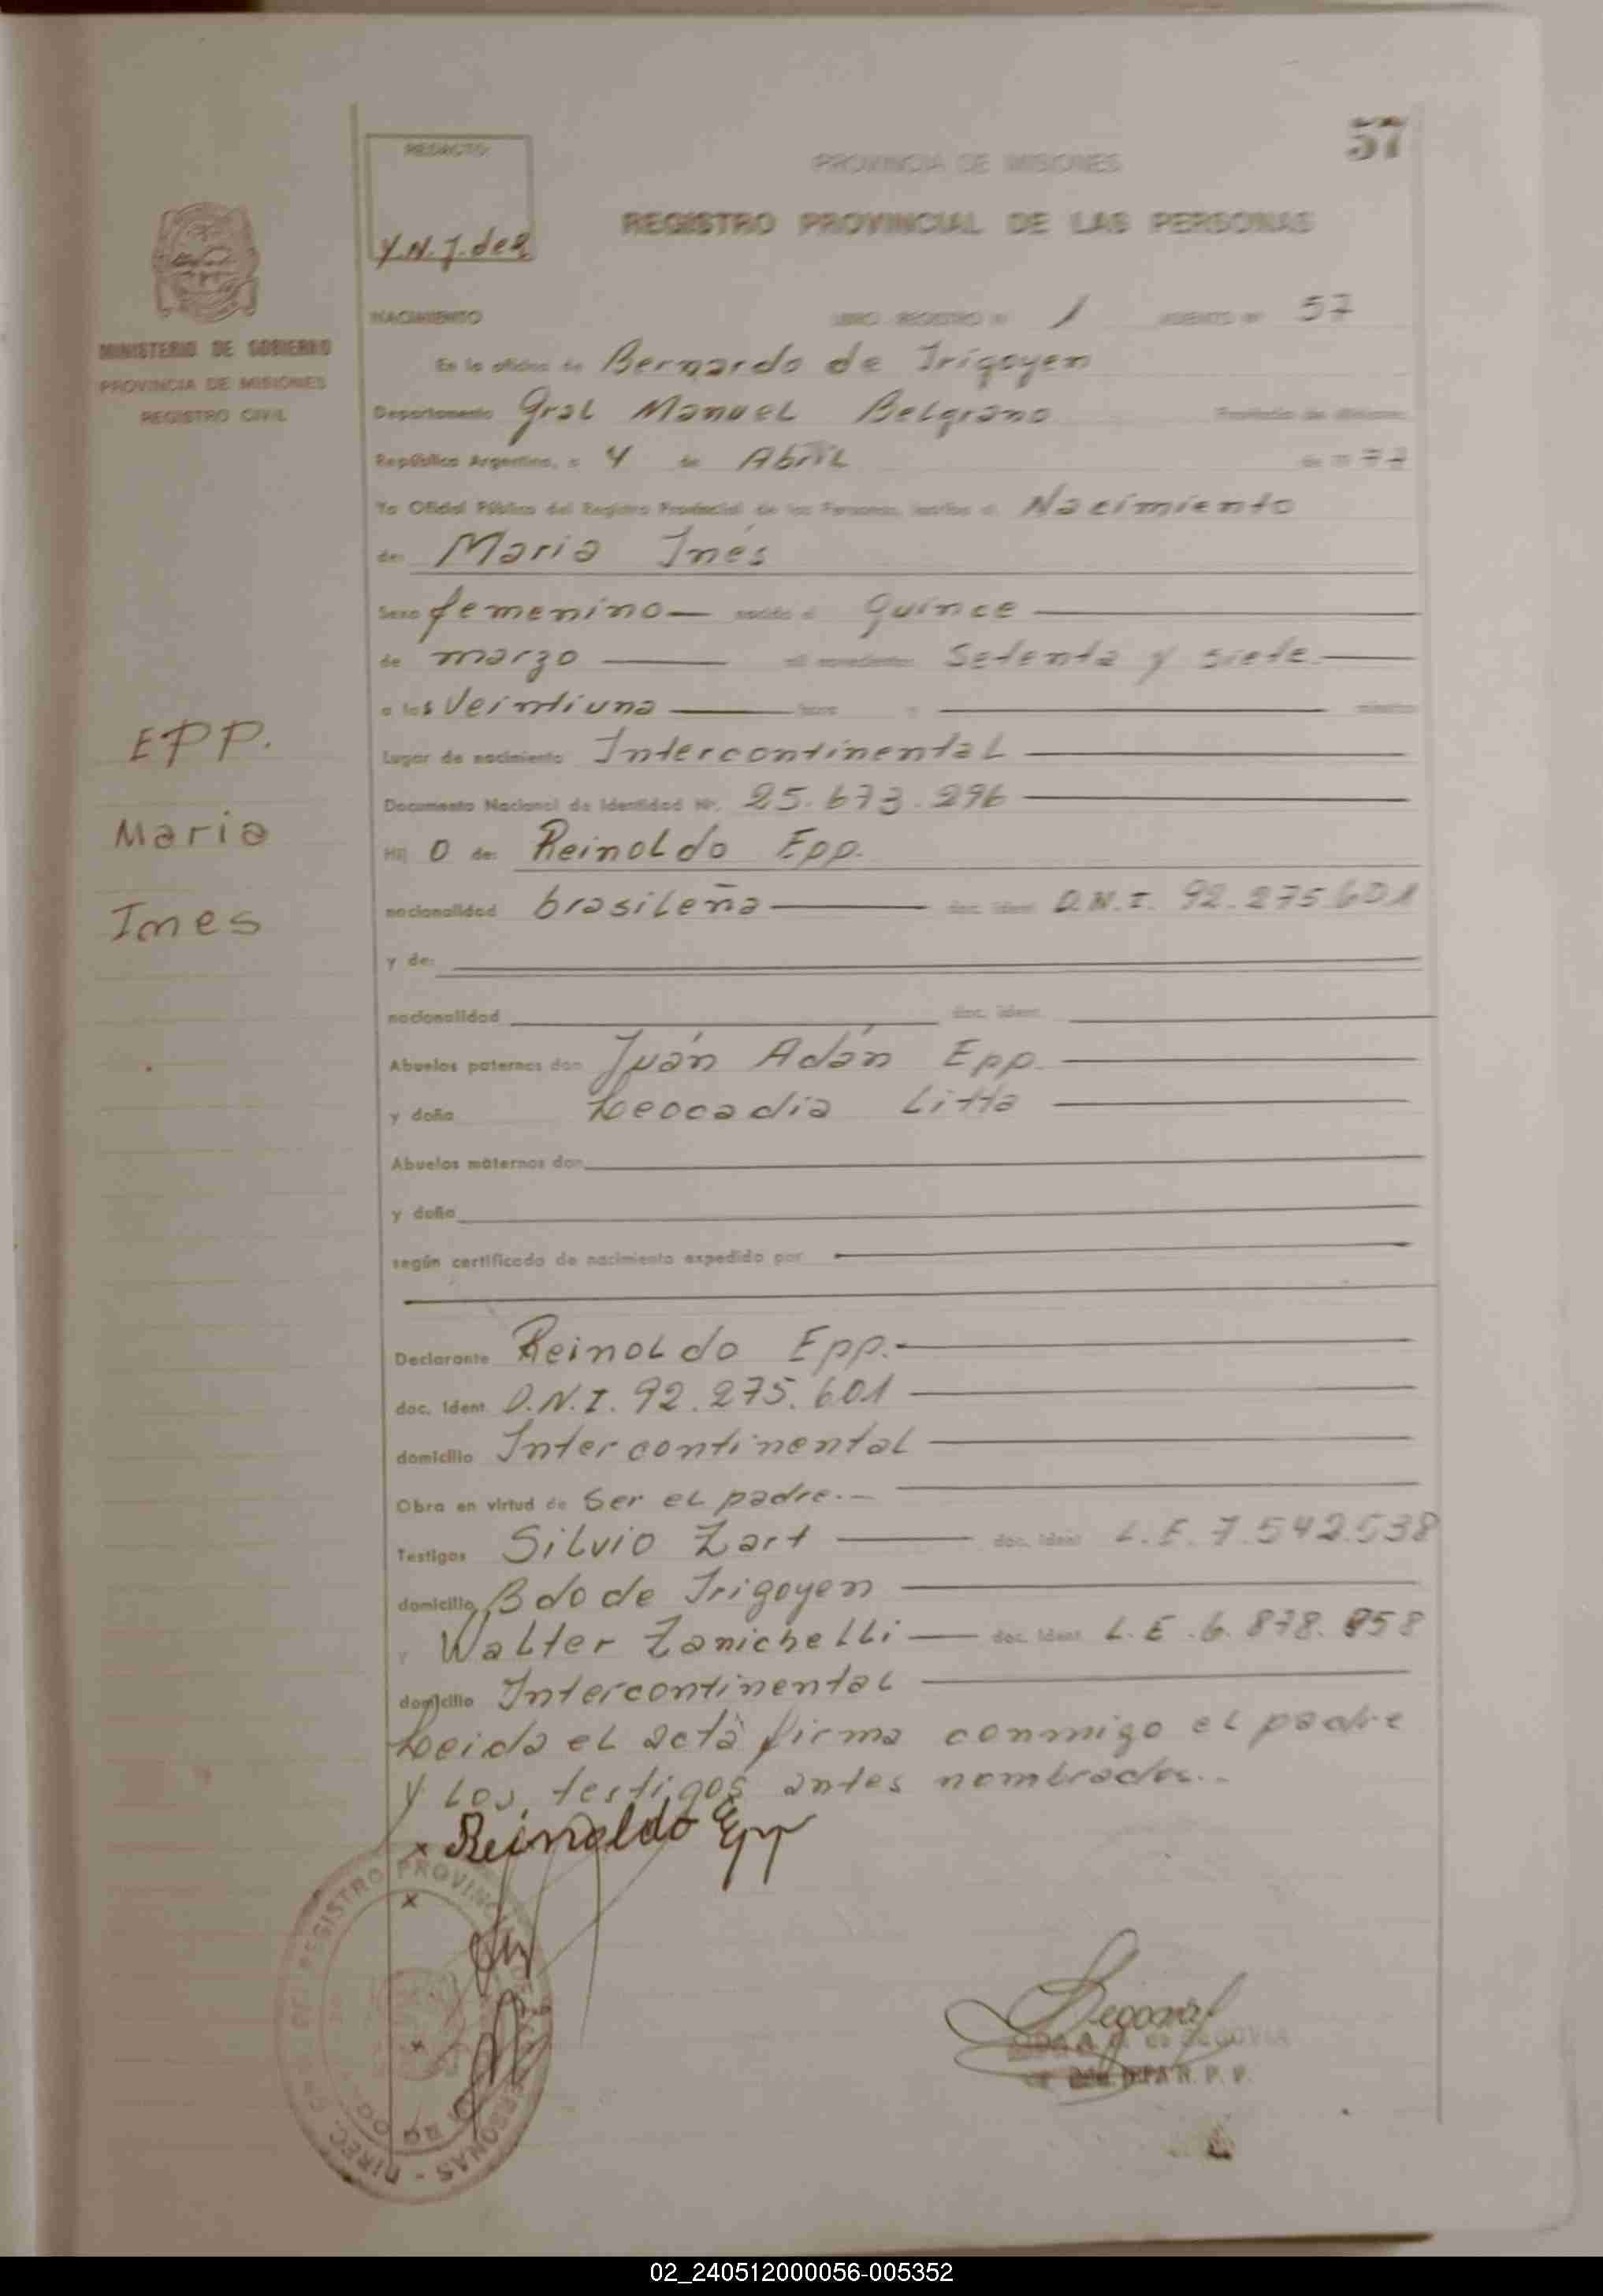 57
REDACTO
Y.N.J. de R
PROVINCIA DE MISIONES
REGISTRO PROVINCIAL DE LAS PERSONAS
MINISTERIO DE GOBIERNO
PROVINCIA DE MISIONES
REGISTRO CIVIL
NACIMIENTO LIBRO REGISTRO Nº 1 ASIENTO Nº 57
En la oficina de Bernardo de Irigoyen
Departamento Gral Manuel Belgrano Provincia de Misiones
República Argentina, a 4 de Abril de 19 77
Yo Oficial Público del Registro Provincial de las Personas, inscribo el Nacimiento
de: Maria Inés
Sexo femenino— nacido el Quince
de marzo mil novecientos Setenta y siete
a las Veintiuna horas y minutos
Lugar de nacimiento Intercontinental
Documento Nacional de Identidad Nº. 25.673.296
EPP.
Maria
Ines
Hij O de: Reinoldo Epp.
nacionalidad brasileña doc. Ident. D.N.I. 92.275.601
y de:
nacionalidad doc. Ident.
Abuelos paternos don Juán Adán Epp.
y doña Leocadia Litta
Abuelos maternos don
y doña
según certificado de nacimiento expedido por
Declarante Reinoldo Epp.-
doc. Ident D.N.I. 92.275.601
domicilio Intercontinental
Obra en virtud de Ser el padre.—
Testigos Silvio Zart doc. Ident L.E. 7.542.538
domicilio Bdo de Irigoyen
y Walter Zanichelli doc. Ident L.E. 6.878.958
domicilio Intercontinental
Leida el acta firma conmigo el padre
y los testigos antes nombrados..-
x Reinoldo Epp
x
x
DIREC. GRAL. DEL REGISTRO PROVINCIAL DE LAS PERSONAS
de SEGOVIA
02_240512000056-005352